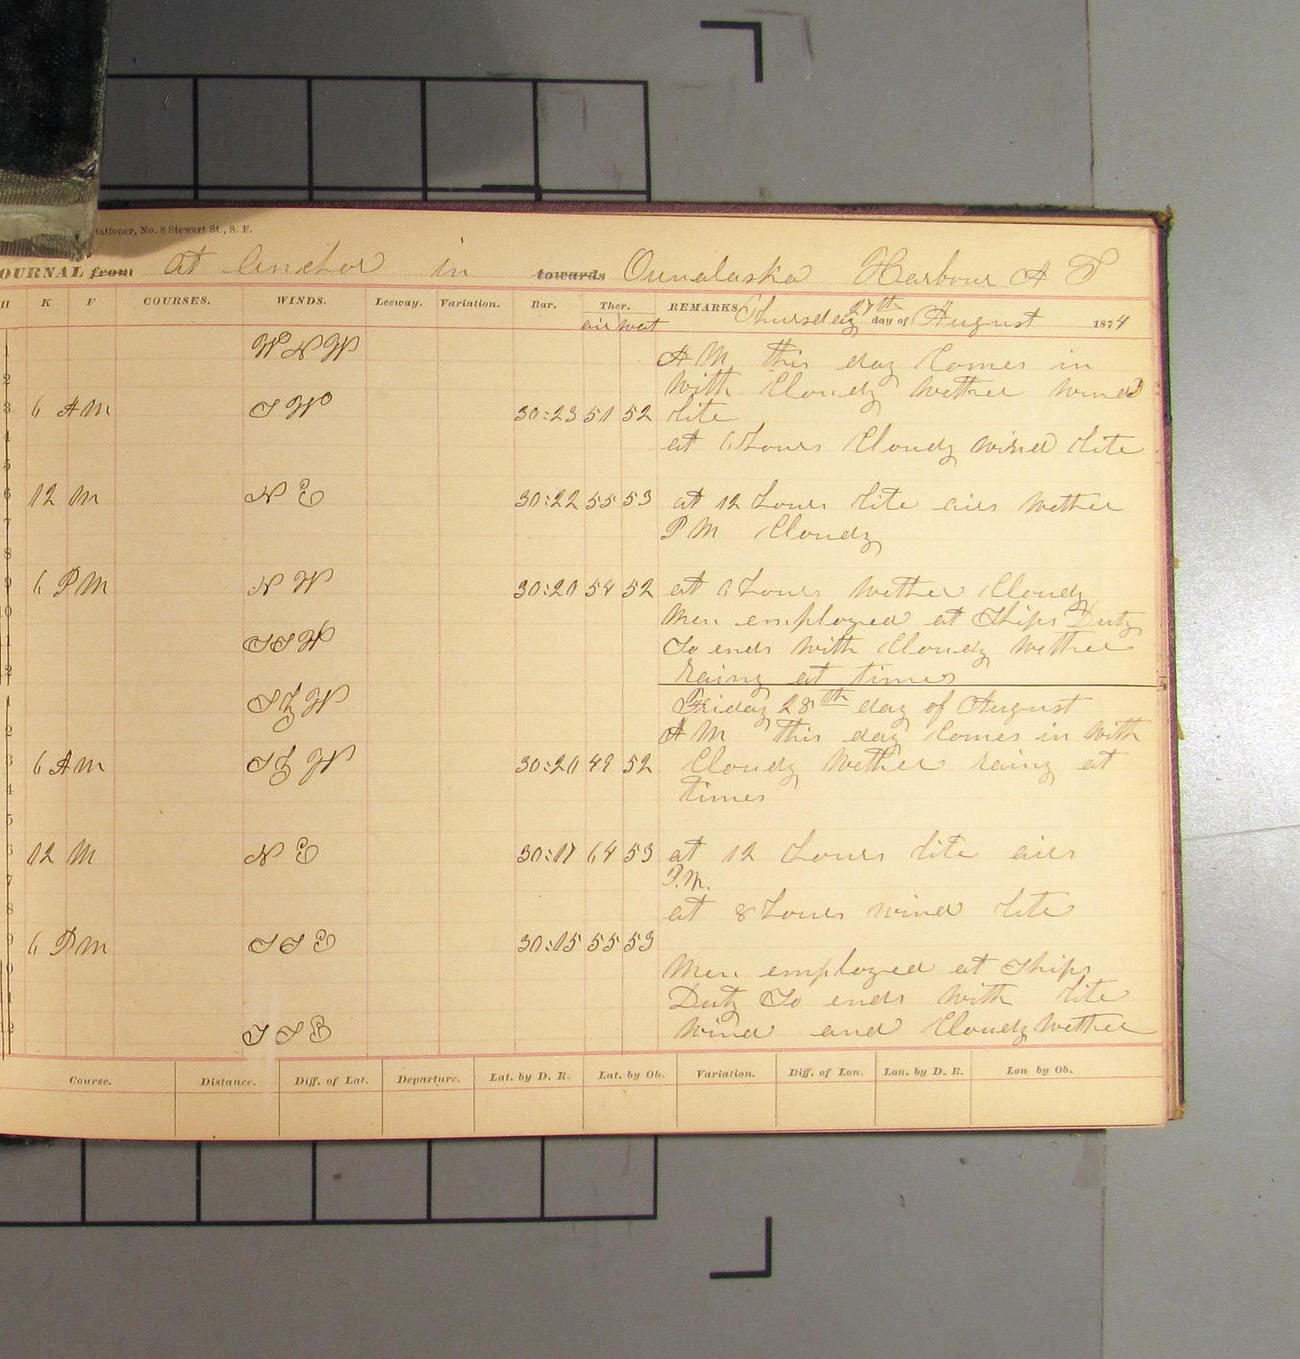 tationer, No. 8 Stewart St., S. F.
OURNAL from at anchor in towards Ounalaska Harbour A T
H K F COURSES. WINDS. Leeway. Variation. Bar. Ther. REMARKS Thursday 27th day of August 1874
air wat
1 WNW A M this day Comes in
2 With Cloudy Wether Wind
3 6 A M S W 30:23 51 52 lite
4 at 6 hours Cloudy wind lite
5
6 12 M N E 30:22 55 53 at 12 hours lite airs Wether
7 P M Cloudy
8
9 6 P M N W 30:20 54 52 at 6 hours Wether Cloudy
10 Men employed at Ships Duty
11 S S W So ends With Cloudy Wether
12 rainy at times
1 S by W Friday 28th day of August
2 A M this day Comes in With
3 6 A M S by W 30:20 49 52 Cloudy Wether rainy at
4 times
5
6 12 M N E 30:17 64 53 at 12 hours lite airs
7 P.M.
8 at 8 hours wind lite
9 6 P M S S E 30:15 55 53
10 Men employed at Ships
11 Duty So ends With lite
12 S S E Wind and Cloudy Wether
Course. Distance. Diff. of Lat. Departure. Lat. by D. R. Lat. by Ob. Variation. Diff. of Lon. Lon. by D. R. Lon by Ob.